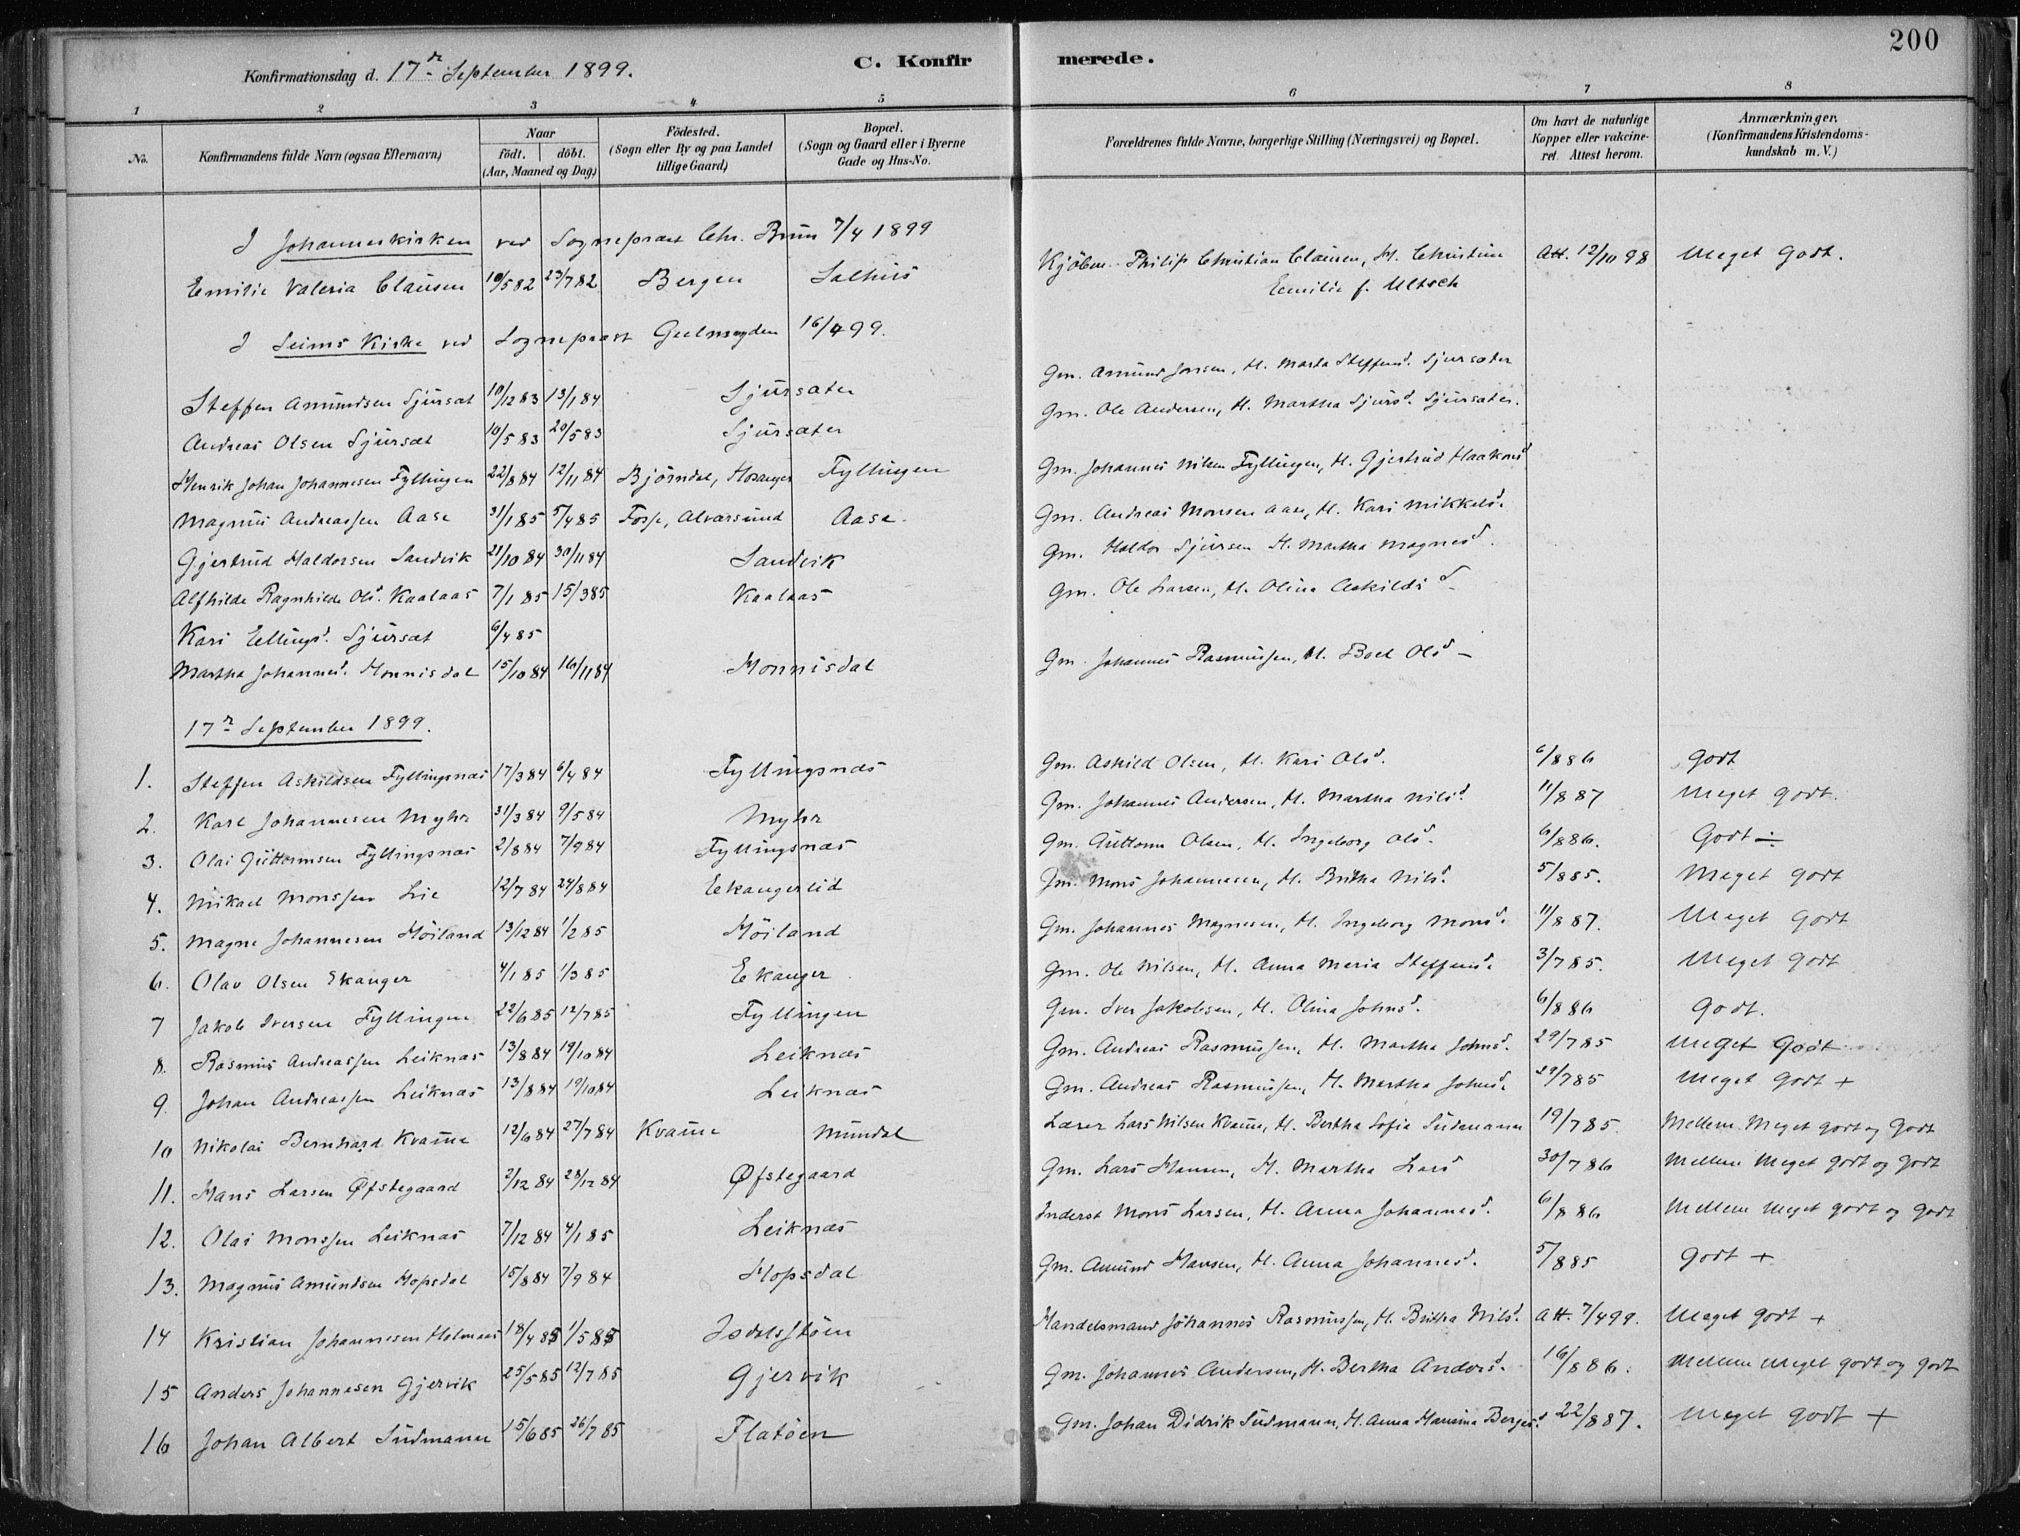 200
Konfirmationsdag d. 17de September 1899. C. Konfirmerede.
1 2 3 4 5 6 7 8
No. Konfirmandens fulde Navn (ogsaa Efternavn) Naar født. døbt. (Aar, Maaned og Dag) Fødested. (Sogn eller By og paa Landet tillige Gaard) Bopæl. (Sogn og Gaard eller i Byerne Gade og Hus-No. Forældrenes fulde Navne, borgerlige Stilling (Næringsvei) og Bopæl. Om havt de naturlige Kopper eller vakcineret. Attest herom. Anmærkninger. (Konfirmandens Kristendomskundskab m. V.)
I Johanneskirken ved Sognepræst Chr. Brun 7/4 1899
Emilie Valeria Clausen 19/5 82 23/7 82 Bergen Salhus Kjøbm. Philip Christian Clausen, H. Christine Emilie f. Ultsch Att. 12/10 98 Meget Godt.
I Seims Kirke ved Sognepræst Geelmuyden 16/4 99.
Steffen Amundsen Sjursæt 10/12 83 13/1 84 Sjursæter Gm. Amund Jonsen, H. Marta Steffensd. Sjursæter
Andreas Olsen Sjursæt 10/5 83 20/5 83 Sjursæter Gm. Ole Andersen, H. Martha Sjursd. Sjursæter.
Henrik Johan Johannesen Fyllingen 22/8 84 12/11 84 Bjørndal, Hosanger Fyllingen Gm. Johannes Nilsen Fyllingen, H. Gjertrud Haakonsd
Magnus Andreassen Aase 31/1 85 5/4 85 Fosse, Alversund Aase. Gm. Andreas Monsen Aase, H. Kari Mikkelsd.
Gjertrud Haldorsen Sandvik 21/10 84 30/11 84 Sandvik Gm. Haldor Sjursen H. Martha Magnesd.
Alfhilde Ragnhilde Olsd. Kaalaas 7/1 85 15/3 85 Kaalaas Gm. Ole Larsen, H. Olina Askildsd
Kari Ellingsd. Sjursæt 6/4 85
Martha Johannesd. Honnisdal 15/10 84 16/11 84 Honnisdal Gm. Johannes Rasmussen, H. Boel Olsd -
17de September 1899.
1. Steffen Askildsen Fyllingsnæs 17/3 84 6/4 84 Fyllingsnæs Gm. Askild Olsen, H. Kari Olsd. 6/8 86 Godt
2. Karl Johannesen Myhr 31/3 84 9/5 84 Myhr Gm. Johannes Andersen, H. Martha Nilsd. 11/8 87 Meget Godt.
3. Olai Guttormsen Fyllingsnæs 2/8 84 7/9 84 Fyllingsnæs Gm. Guttorm Olsen, H. Ingeborg Olsd. 6/8 86. Godt ÷
4. Mikael Monssen Lie 12/7 84 24/8 84 Eekangerlid Gm. Mons Johannesen, H. Britha Nilsd. 5/8 85. Meget Godt
5. Magne Johannesen Høiland 13/12 84 1/2 85 Høiland Gm. Johannes Magnesen, H. Ingeborg Monsd. 11/8 87. Meget Godt
6. Olav Olsen Ekanger 4/1 85 1/3 85 Ekanger Gm. Ole Nilsen, H. Anna Maria Steffensd. 3/7 85. Meget Godt
7 Jakob Iversen Fyllingen 22/6 85 12/7 85 Fyllingen Gm. Iver Jakobsen, H. Olina Johnsd. 6/8 86 Godt.
8. Rasmus Andreassen Leiknæs 13/8 84 19/10 84 Leiknæs Gm. Andreas Rasmussen, H. Martha Johnsd. 29/7 85 Meget Godt
9. Johan Andreassen Leiknæs 13/8 84 19/10 84 Leiknæs Gm. Andreas Rasmussen, H. Martha Johnsd. 29/7 85 Meget Godt +
10 Nikolai Bernhard Kvamme 12/6 84 27/7 84 Kvamme Mundal Lærer Lars Nilsen Kvamme, H. Bertha Sofia Sudmann 19/7 85. Mellem Meget godt og Godt
11. Hans Larsen Øfstegaard 2/12 84 28/12 84 Øfstegaard Gm. Lars Hansen, H. Martha Lars 30/7 86 Mellem Meget Godt og Godt
12. Olai Monssen Leiknæs 7/12 84 4/1 85 Leiknæs Inderst Mons Larsen, H. Anna Johannesd. 6/8 86 Mellem Meget godt og Godt
13. Magnus Amundsen Hopsdal 15/8 84 7/9 84 Hopsdal Gm. Amund Hansen, H. Anna Johannesd. 5/8 85 Godt +
14 Kristian Johannesen Holmaas 18/4 85 1/5 85 Isdalsstøen Handelsmand Johannes Rasmussen, H. Britha Nilsd. Att. 7/4 99. Meget Godt +
15 Anders Johannesen Gjervik 25/5 85 12/7 85 Gjervik Gm. Johannes Andersen, H. Bertha Andersd. 16/8 86. Mellem Meget Godt og Godt
16 Johan Albert Sudmann 15/6 85 26/7 85 Flatøen Gm. Johan Didrik Sudmann, H. Anna Hansina Bergesd 22/8 87. Meget Godt +